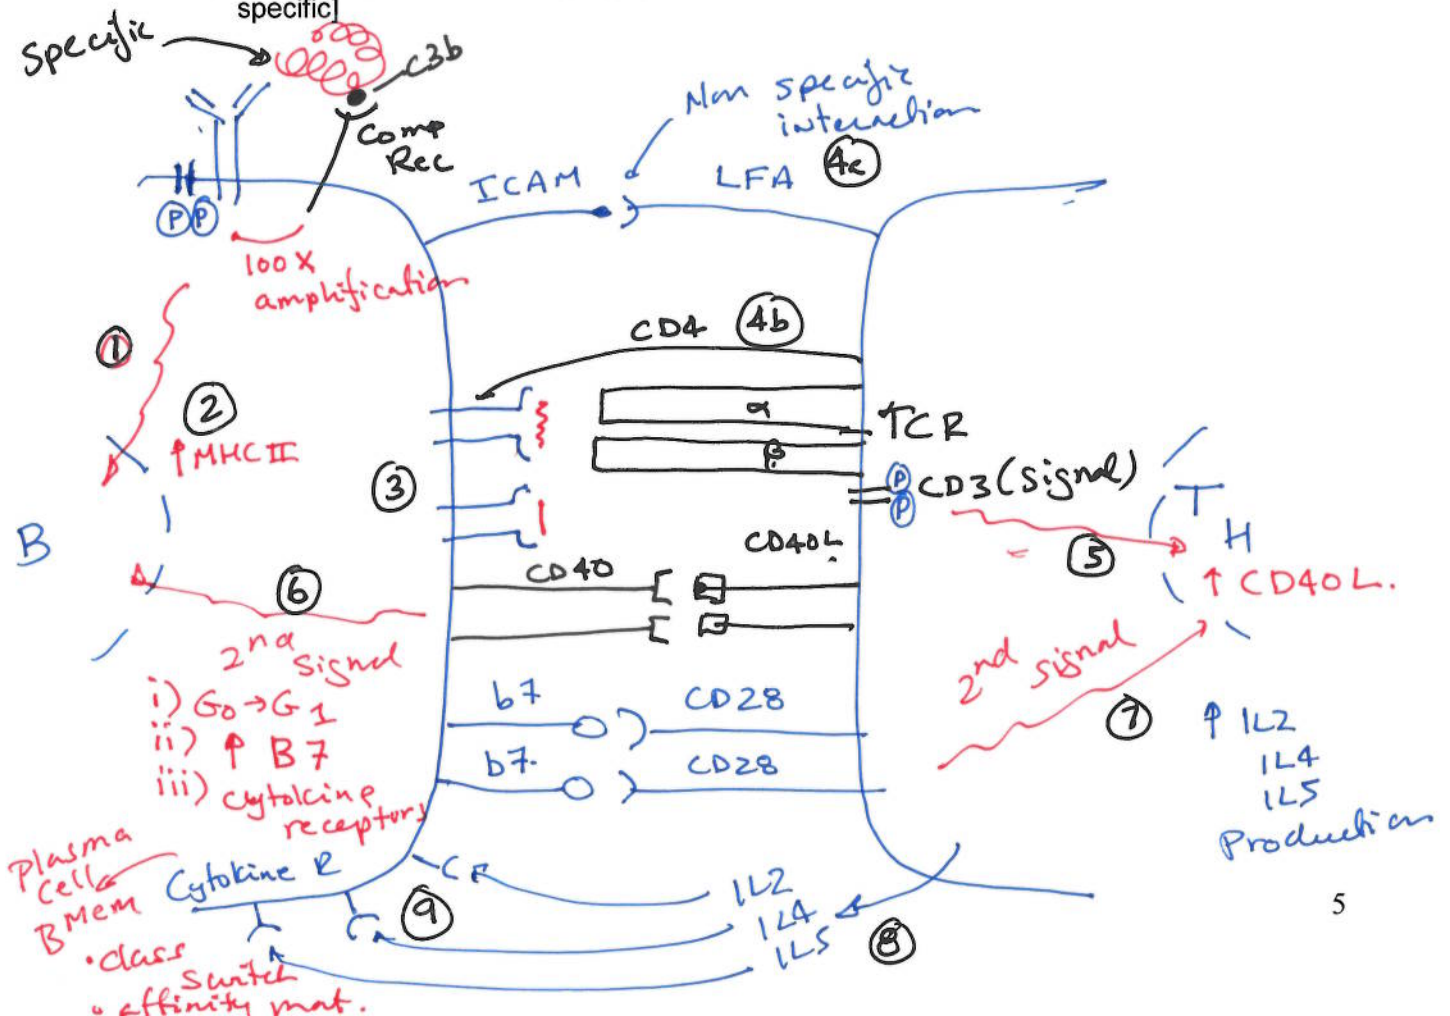 specific]
Specific
C3b
Comp
Rec
Non specific
interaction
ICAM
LFA
4c
P P
100X
amplification
1
2
↑MHC II
3
CD4
4b
α
β
TCR
P
P
CD3 (signal)
5
T
H
↑ CD40L.
B
CD40
CD40L
6
2nd
signal
i) G0→G1
ii) ↑ B7
iii) Cytokine
receptors
b7
CD28
b7.
CD28
2nd signal
7
↑ IL2
IL4
IL5
Production
Plasma
Cell
B Mem
• Class
switch
• affinity mat.
Cytokine R
9
IL2
IL4
IL5
8
5